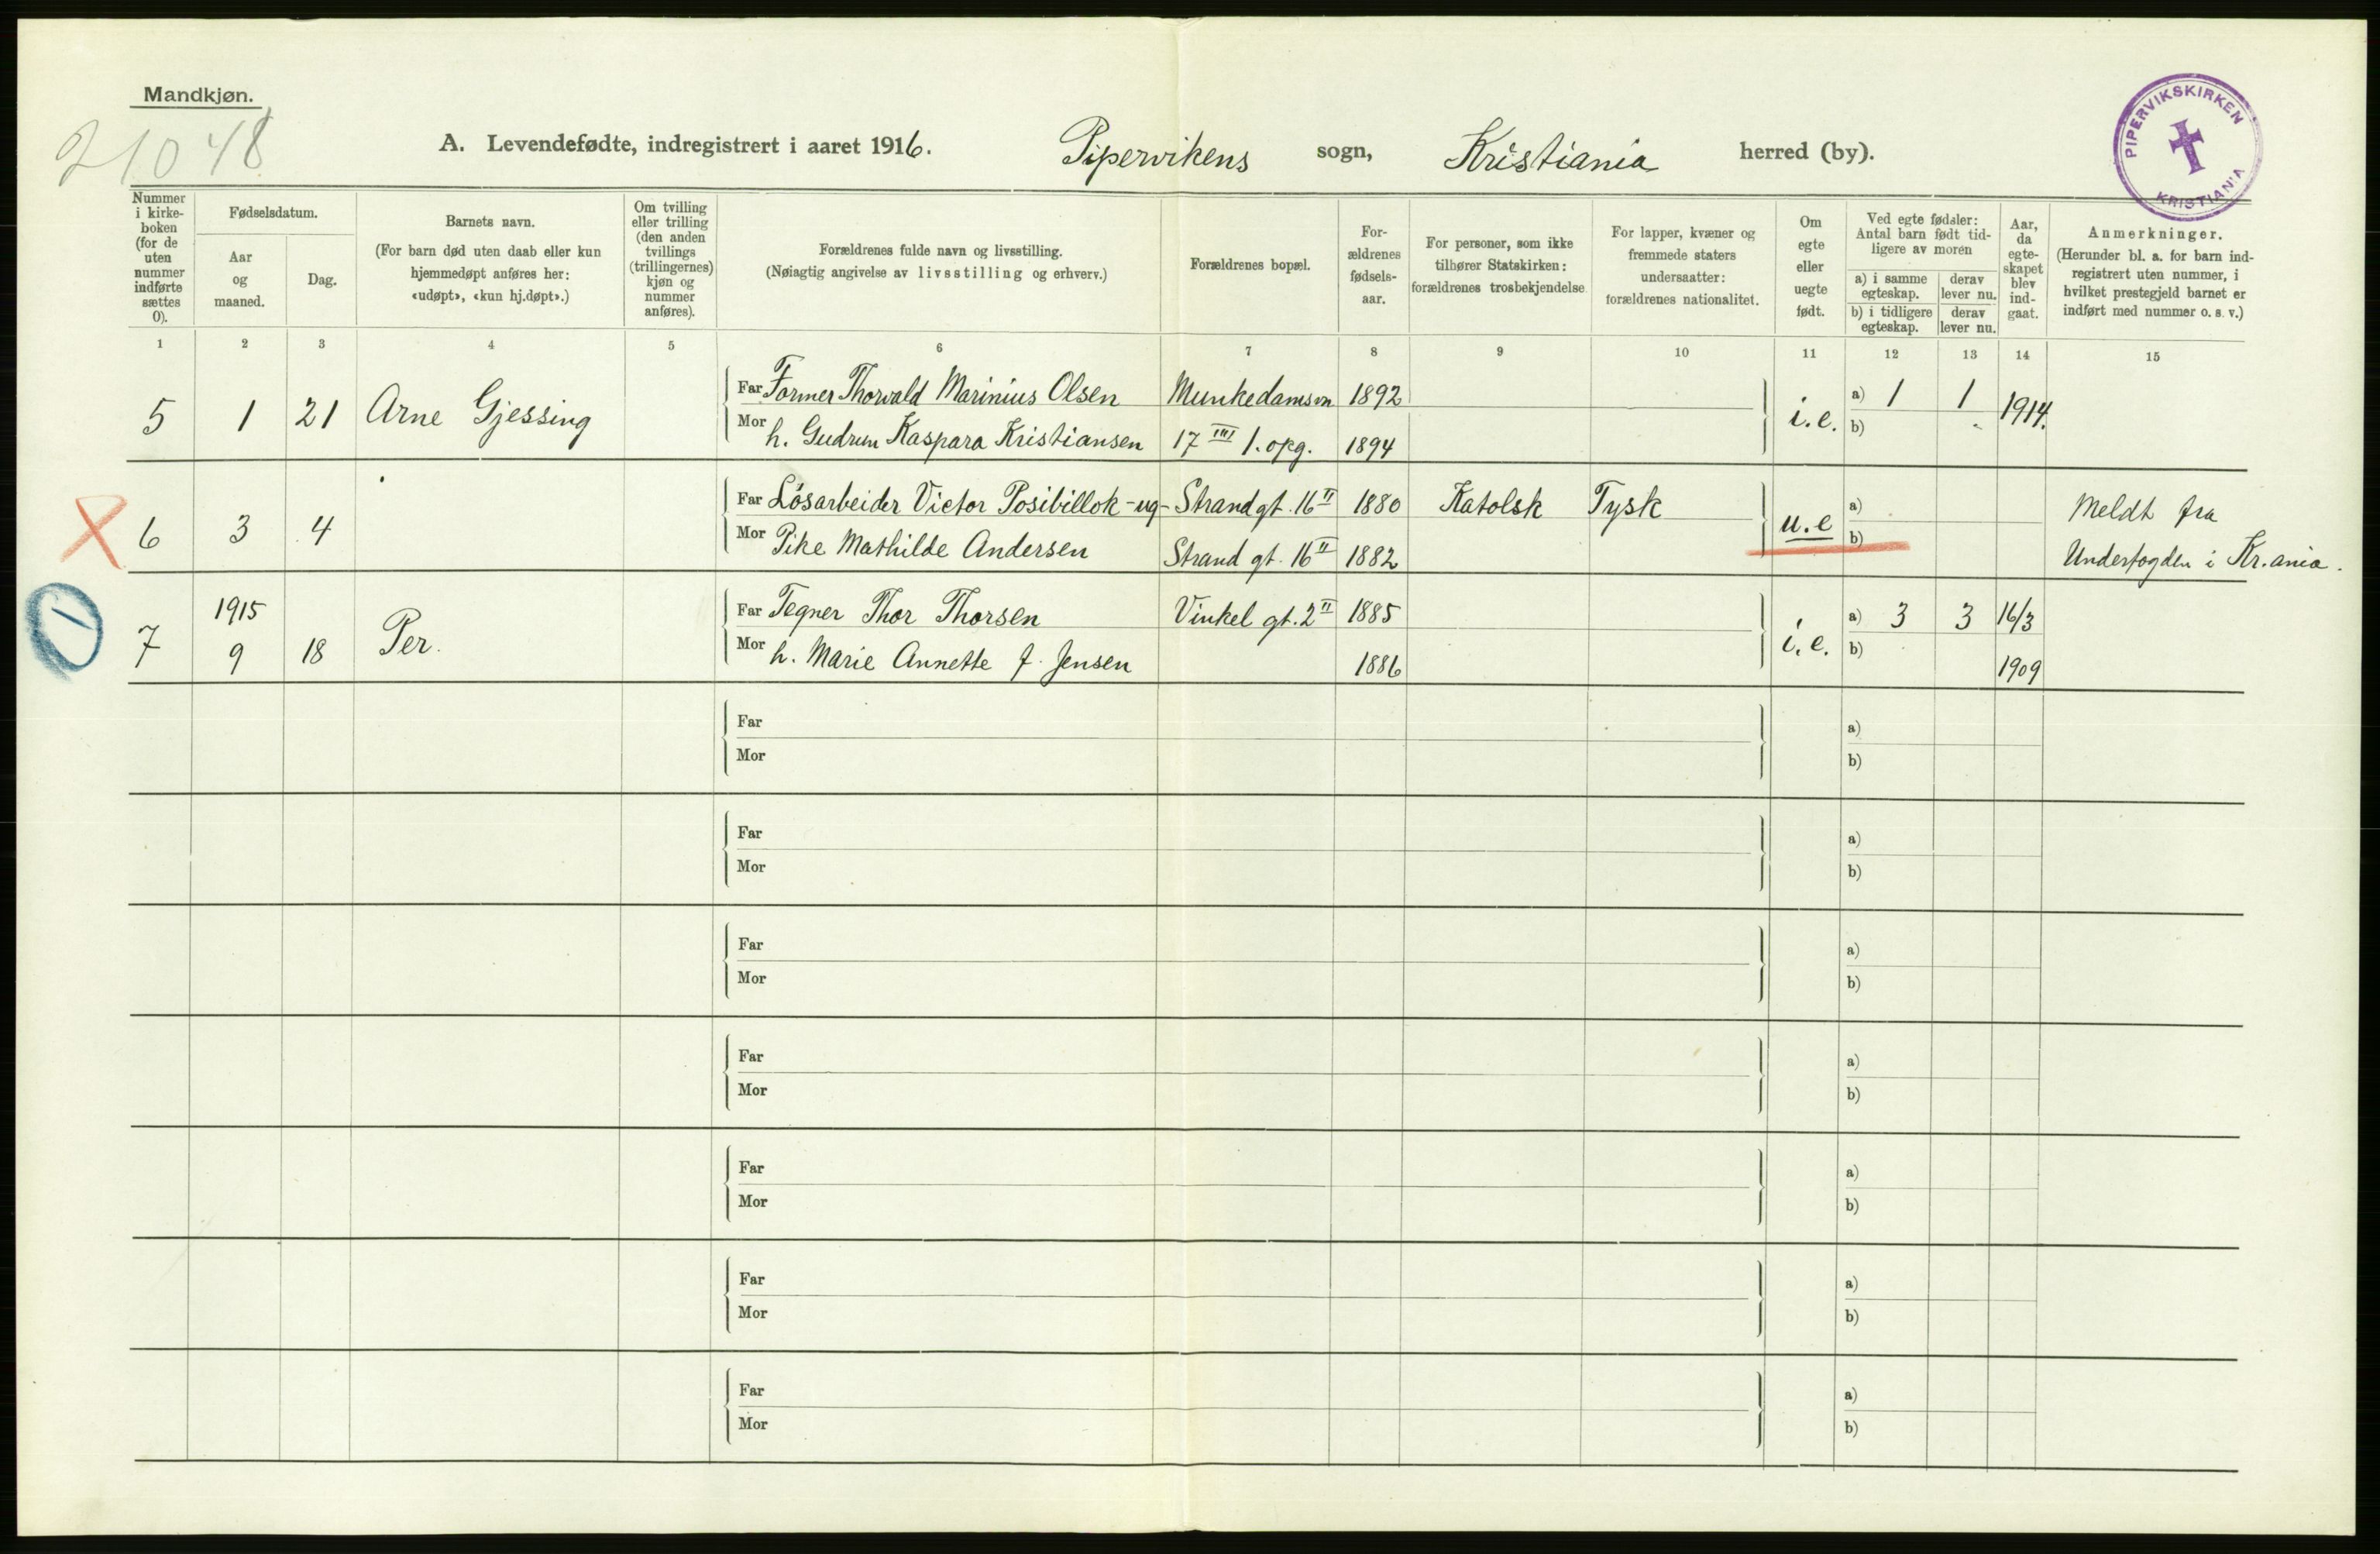 Mandkjøn.
21048
A. Levendefødte, indregistrert i aaret 1916. Pipervikens sogn, Kristiania herred (by).
PIPERVIKSKIRKEN
KRISTIANIA
Nummer i kirke-boken (for de uten nummer indførte sættes 0).
Fødselsdatum.
Aar og maaned.
Dag.
Barnets navn.
(For barn død uten daab eller kun hjemmedøpt anføres her: «udøpt», «kun hj.døpt».)
Om tvilling eller trilling (den anden tvillings (trillingernes) kjøn og nummer anføres).
Forældrenes fulde navn og livsstilling.
(Nøiagtig angivelse av livsstilling og erhverv.)
Forældrenes bopæl.
For-ældrenes fødsels-aar.
For personer, som ikke tilhører Statskirken: forældrenes trosbekjendelse
For lapper, kvæner og fremmede staters undersaatter: forældrenes nationalitet.
Om egte eller uegte født.
Ved egte fødsler: Antal barn født tid-ligere av moren
a) i samme egteskap.
derav lever nu.
b) i tidligere egteskap.
derav lever nu.
Aar, da egte-skapet blev ind-gaat.
Anmerkninger.
(Herunder bl. a. for barn ind-registrert uten nummer, i hvilket prestegjeld barnet er indført med nummer o. s. v.)
1 2 3 4 5 6 7 8 9 10 11 12 13 14 15
5 1 21 Arne Gjessing
Far Former Thorvald Marinius Olsen Munkedamsvn 1892
Mor h. Gudrun Kaspara Kristiansen 17 III 1. opg. 1894
i.e. a) 1 1 1914.
b)
6 3 4
Far Løsarbeider Victor Posibillok -ug- Strandgt. 16 II 1880 Katolsk Tysk
Mor Pike Mathilde Andersen Strandgt. 16 II 1882
u.e a)
b)
Meldt fra
Underfogden i Kr.ania.
7 1915
9 18 Per.
Far Tegner Thor Thorsen Vinkelgt. 2 II 1885
Mor h. Marie Annette f. Jensen 1886
i.e. a) 3 3 16/3
b) 1909
Far a)
Mor b)
Far a)
Mor b)
Far a)
Mor b)
Far a)
Mor b)
Far a)
Mor b)
Far a)
Mor b)
Far a)
Mor b)